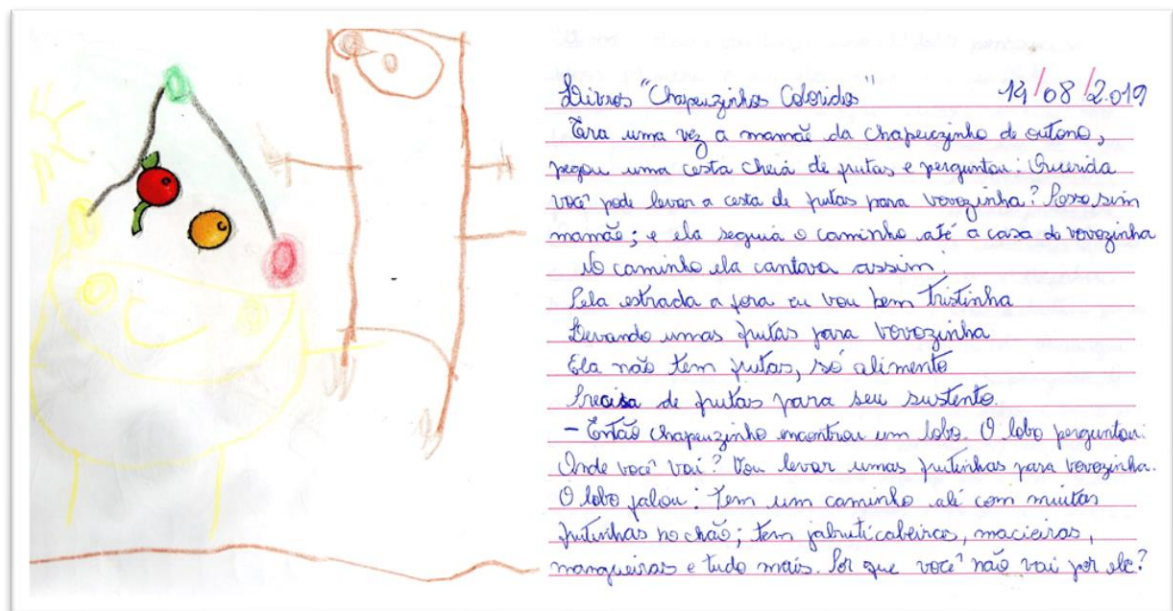 Livros "Chapeuzinhos Coloridos" 14/08/2.019
Era uma vez a mamãe da chapeuzinho de outono,
pegou uma cesta cheia de frutas e perguntou: Querida
você pode levar a cesta de frutas para vovozinha? Posso sim
mamãe; e ela seguia o caminho até a casa da vovozinha
No caminho ela cantava assim:
Pela estrada a fora eu vou bem tristinha
Levando umas frutas para vovozinha
Ela não tem frutas, só alimento
Precisa de frutas para seu sustento.
- Então chapeuzinho encontrou um lobo. O lobo perguntou:
Onde você vai? Vou levar umas frutinhas para vovozinha.
O lobo falou: Tem um caminho ali com muitas
frutinhas no chão; tem jabuticabeiras, macieiras,
mangueiras e tudo mais. Por que você não vai por ele?